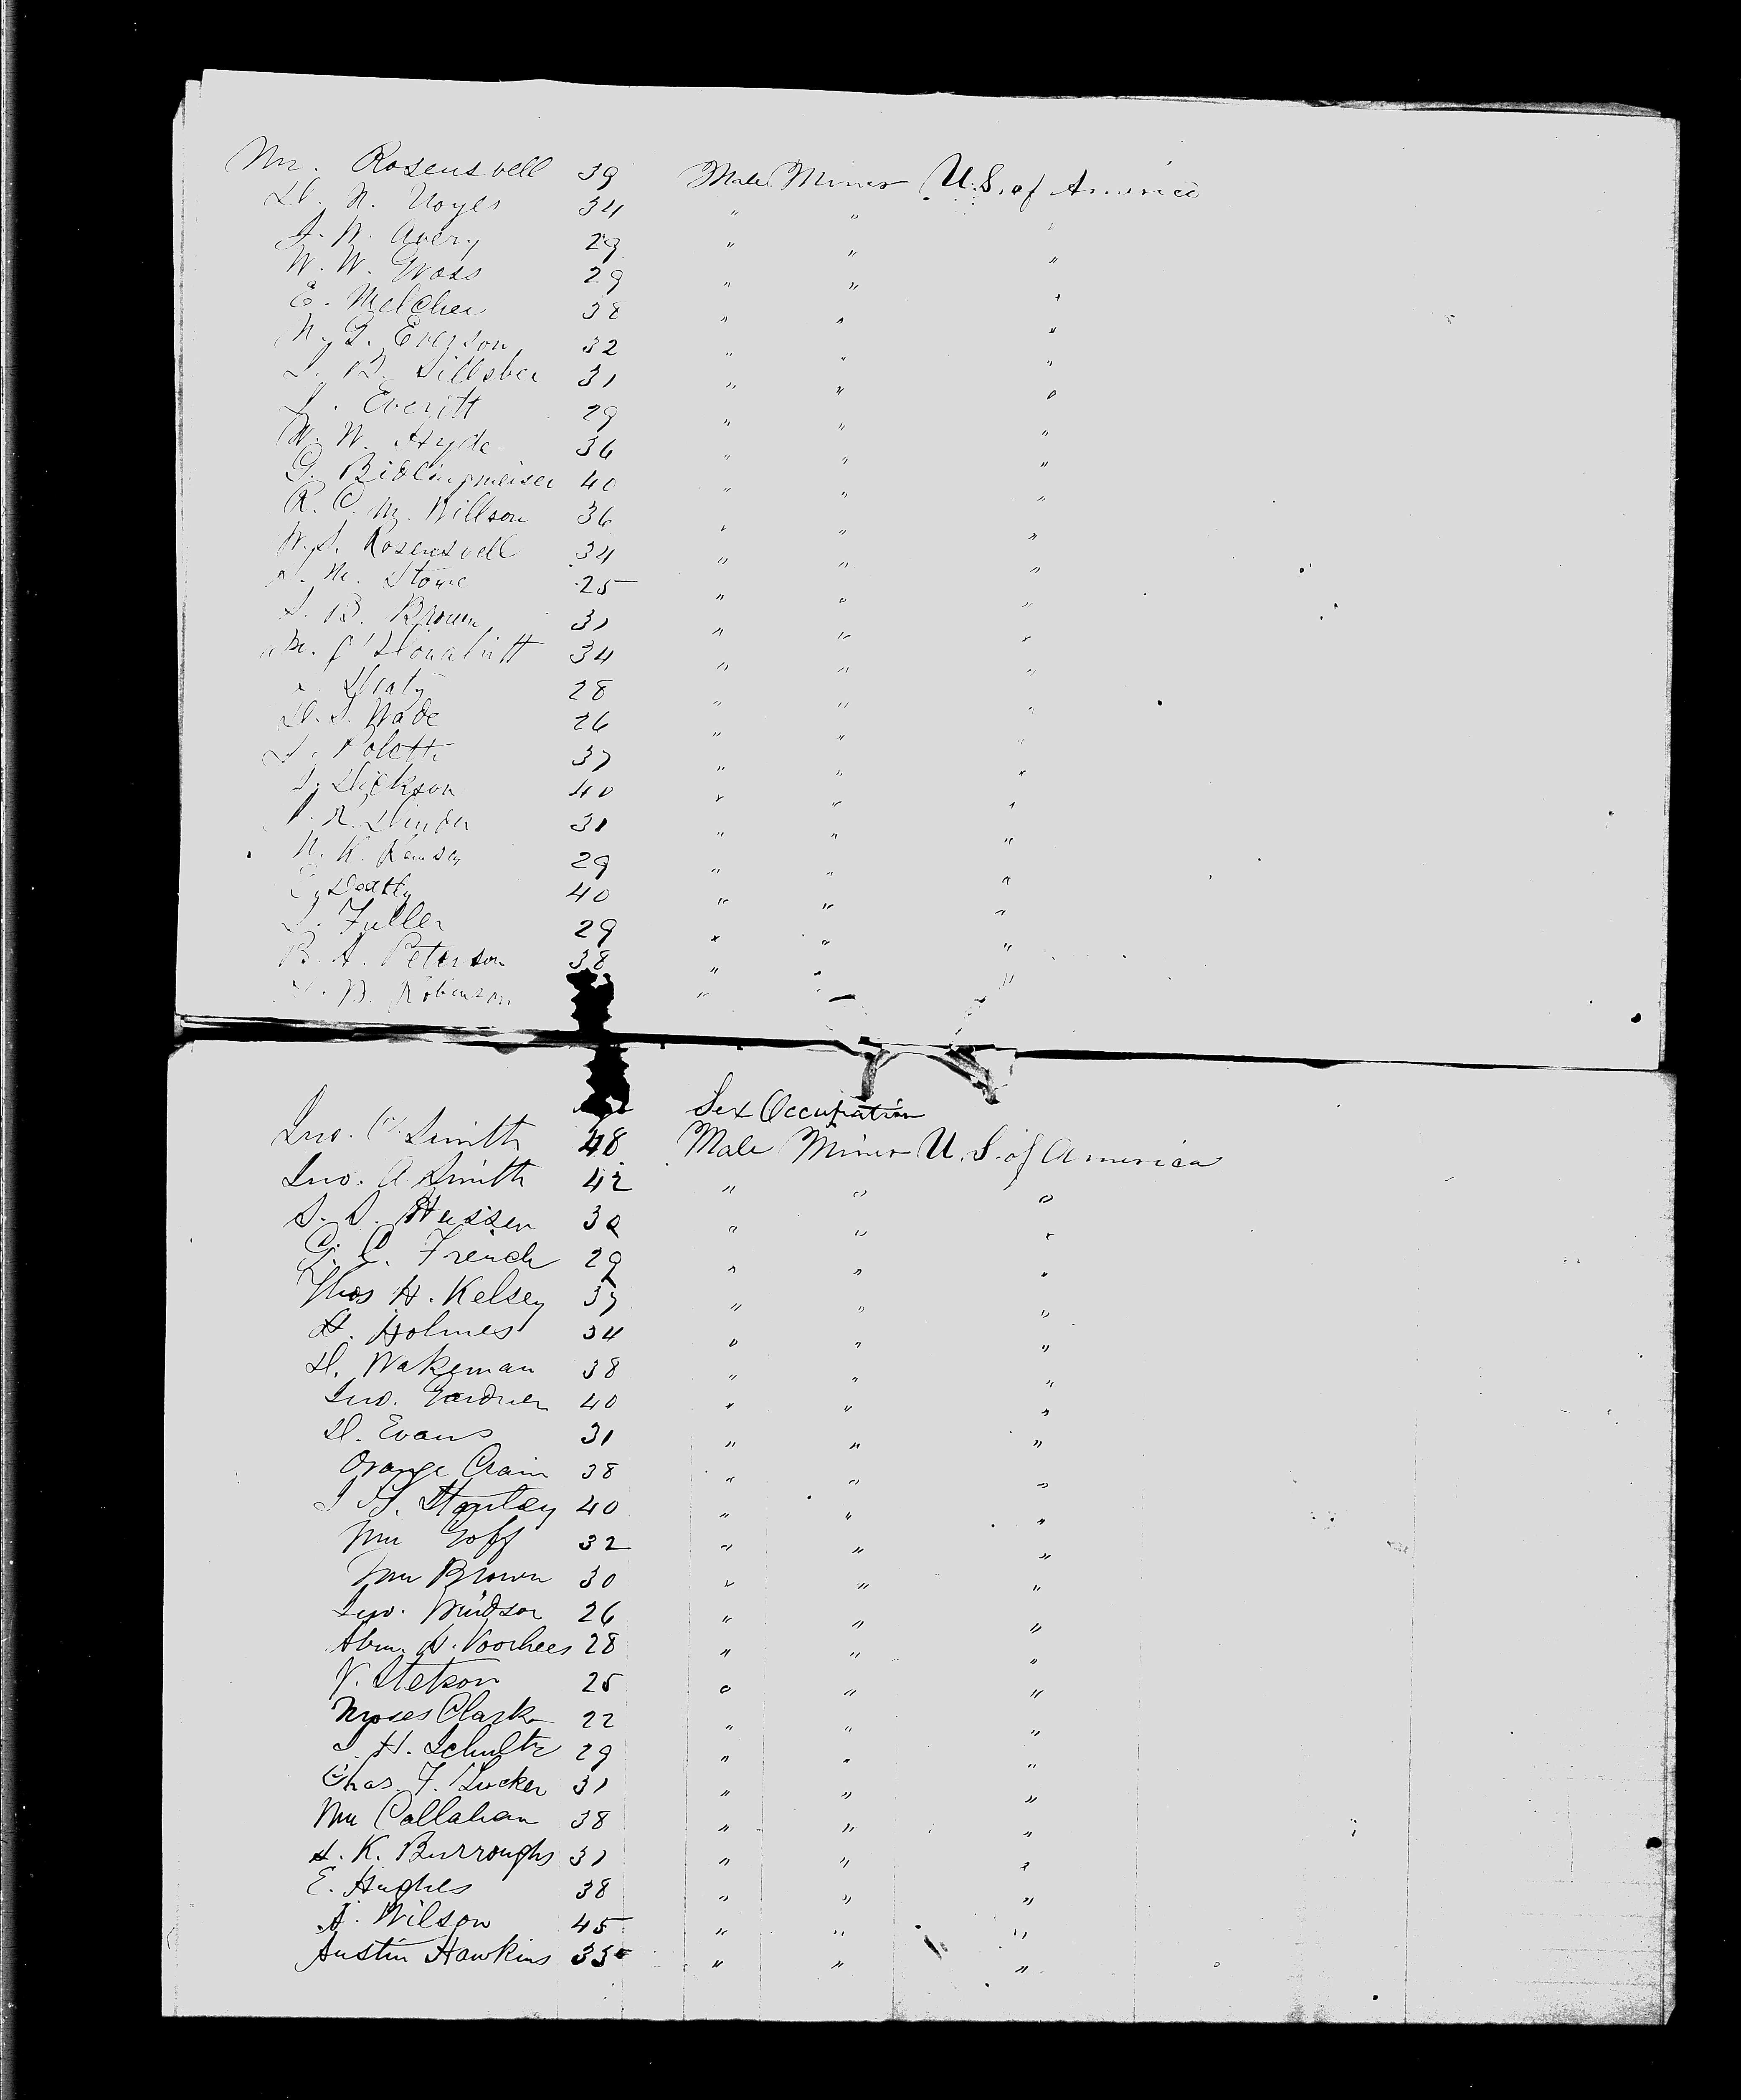 Wm. Rosensvell 39 Male Miner U.S. of America
D. N. Noyes 34 " " "
J. W. Avery 29 " " "
W. W. Gross 29 " " "
E. Melcher 38 " " "
N. G. Everson 32 " " "
31 " " "
J. Everitt 29 " " "
W. W. Hyde 36 " " "
G. Bidlingmeiser 40 " " "
R. C. M. Willson 36 " " "
W. S. Rosensvell 34 " " "
M. Stowe 25 " " "
S. B. Brown 31 " " "
34 " " "
28 " " "
D. S. Wade 26 " " "
37 " " "
Dickson 40 " " "
31 " " "
N. K. Ramsey 29 " " "
40 " " "
Fuller 29 " " "
B. A. Peterson 38 " " "
Robinson " " "
Sex Occupation
Jno. C. Smith 48 Male Miner U.S. of America
Jno. A Smith 42 " " "
S. S. Hussen " " "
G. C. French 29 " " "
Thos H. Kelsey 37 " " "
H. Holmes 34 " " "
D. Wakeman 38 " " "
Jno. Gardner 40 " " "
D. Evans 31 " " "
Orange Crain 38 " " "
J H. Stanley 40 " " "
Wm Goff 32 " " "
Wm Brown 30 " " "
Jno. Windsor 26 " " "
Abm. H. Voorhees 28 " " "
V. Stetson 25 " " "
Moses Clark 22 " " "
J. H. Schultz 29 " " "
Chas. F. Tucker 31 " " "
Wm Callahan 38 " " "
S. K. Burroughs 31 " " "
E. Hughes 38 " " "
A. Wilson 45 " " "
Austin Hawkins 35 " " "